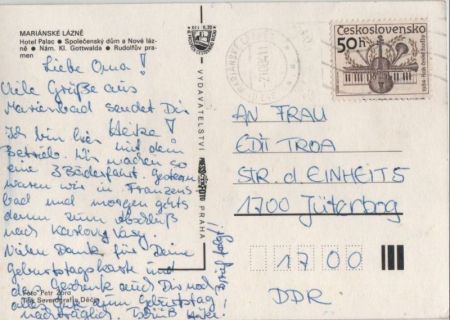 MARIÁNSKÉ LÁZNĚ
Hotel Palac • Společenský dům a Nové láz-
ně • Nám. Kl. Gottwalda • Rudolfův pra-
men
Liebe Oma!
Viele Grüße aus
Marienbad sendet Dir
Heike!
Ich bin hier mit dem
Betrieb. Wir machen so
eine 3 Bäderfahrt. Gestern
waren wir in Franzens
bad und morgen gehts
dann zum
nach Karlovy Vary.
Vielen Dank für Deine
Geburtstagskarte und
das Geschenk
alles Gute zum Geburtstag
nachträglich. Tschüß Heike
Brief folgt!
Foto Petr Zora
Tisk Severografia Děčín
VYDAVATELSTVÍ
PRAHA
Československo
50h
AN FRAU
EDI TROA
STR. d. EINHEIT 5
1700 Jüterbog
1700
DDR